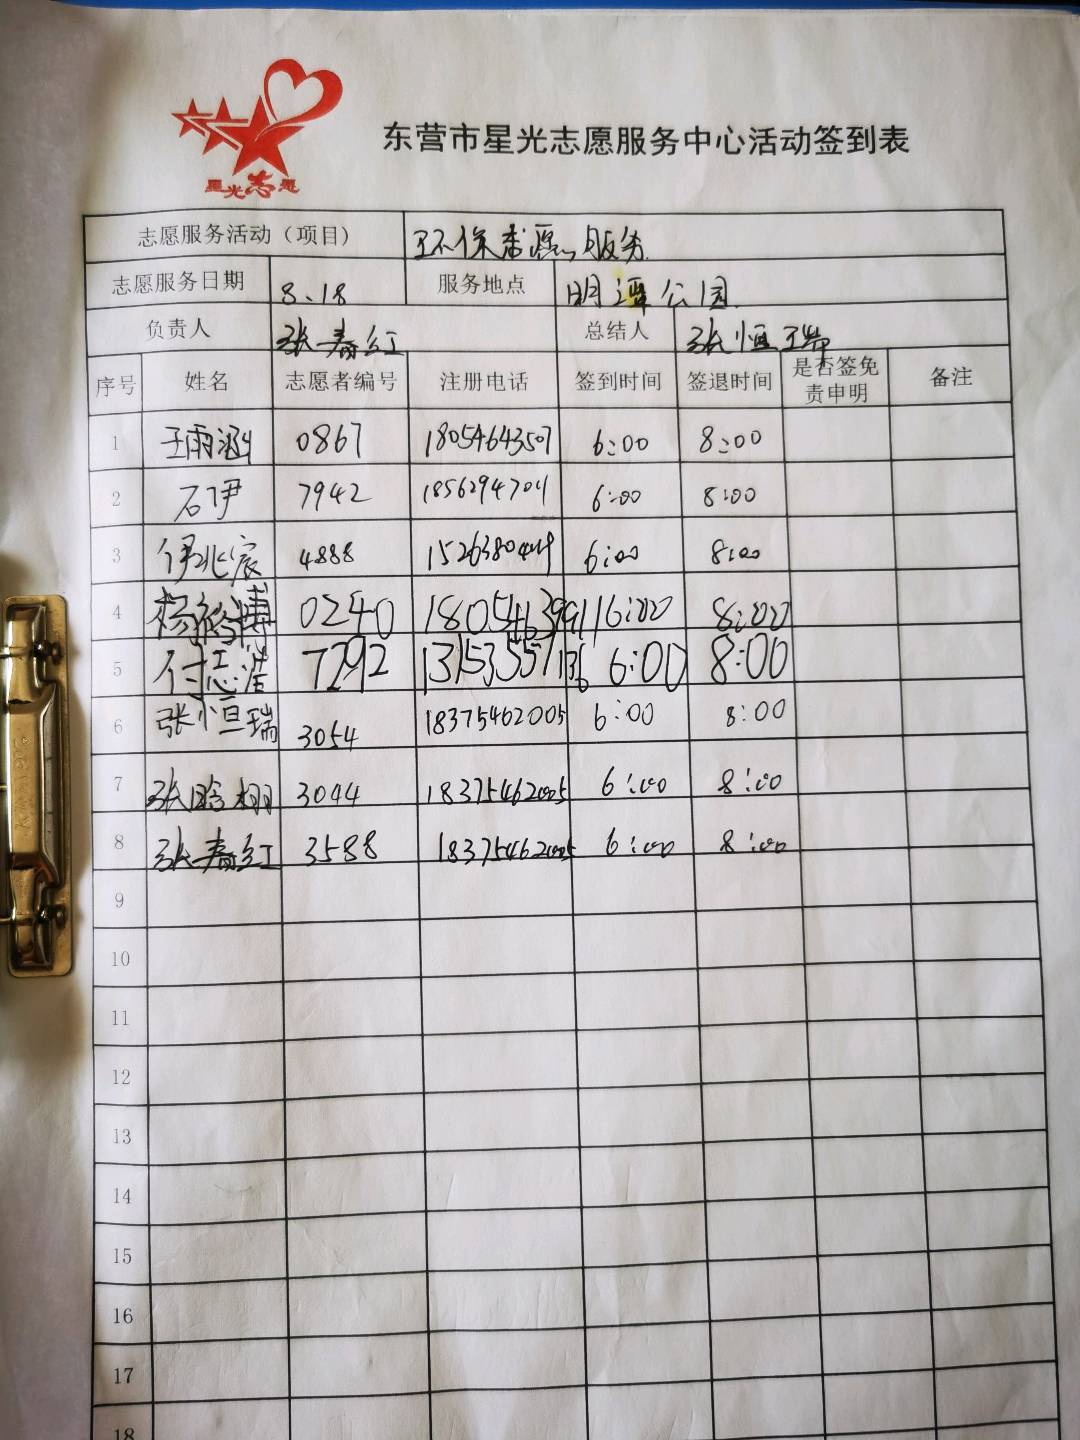 星光志愿
东营市星光志愿服务中心活动签到表
志愿服务活动（项目) 环保志愿服务
志愿服务日期 8.18 服务地点 明潭公园
负责人 张春红 总结人 张恒瑞
序号 姓名 志愿者编号 注册电话 签到时间 签退时间 是否签免责申明 备注
1 王雨涵 0867 18054643507 6:00 8:00
2 石伊 7942 18562947011 6:00 8:00
3 伊兆宸 4888 6:00 8:00
4 0240 18054639911 6:00 8:00
5 付志浩 7292 13153557136 6:00 8:00
6 张恒瑞 3054 18375462005 6:00 8:00
7 张晗栩 3044 18375462005 6:00 8:00
8 张春红 3588 18375462005 6:00 8:00
9
10
11
12
13
14
15
16
17
18